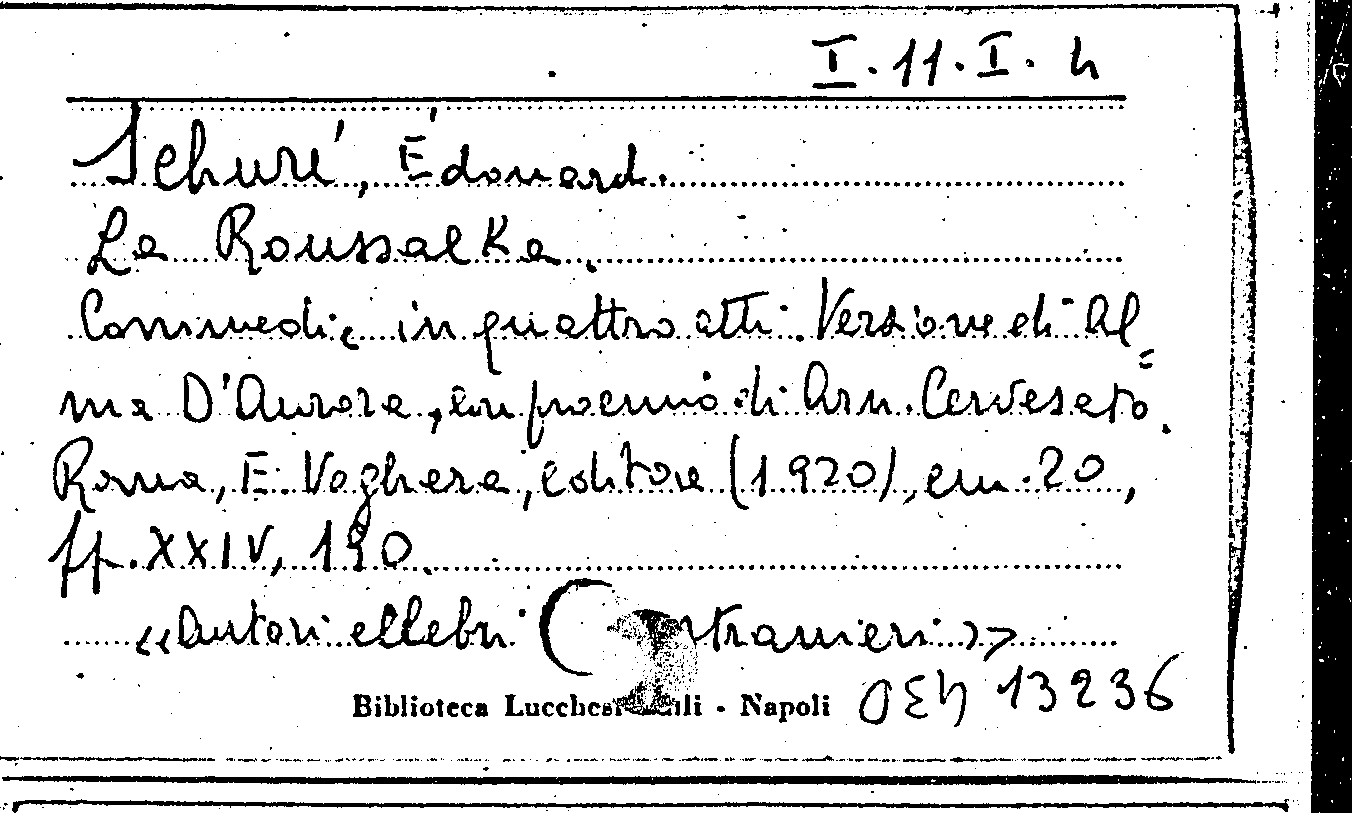 I.11.I.4
Schuré, Édouard.
La Roussalka.
Commedia in quattro atti. Versione di Al=
ma D'Aurora, con proemio di Arn. Cervesato.
Roma, E. Voghera, editore (1920), cm. 20,
pp. XXIV, 190.
«Autori celebri stranieri»
Biblioteca Lucchesi Palli - Napoli
13236